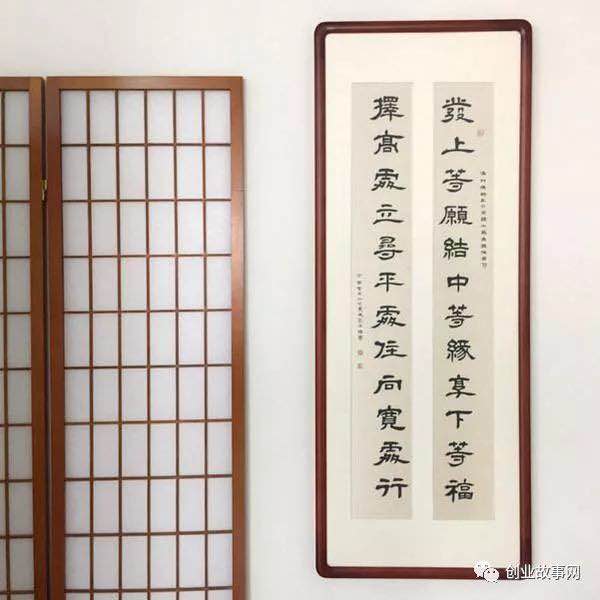 發上等願結中等緣享下等福
擇高處立尋平處住向寬處行
创业故事网